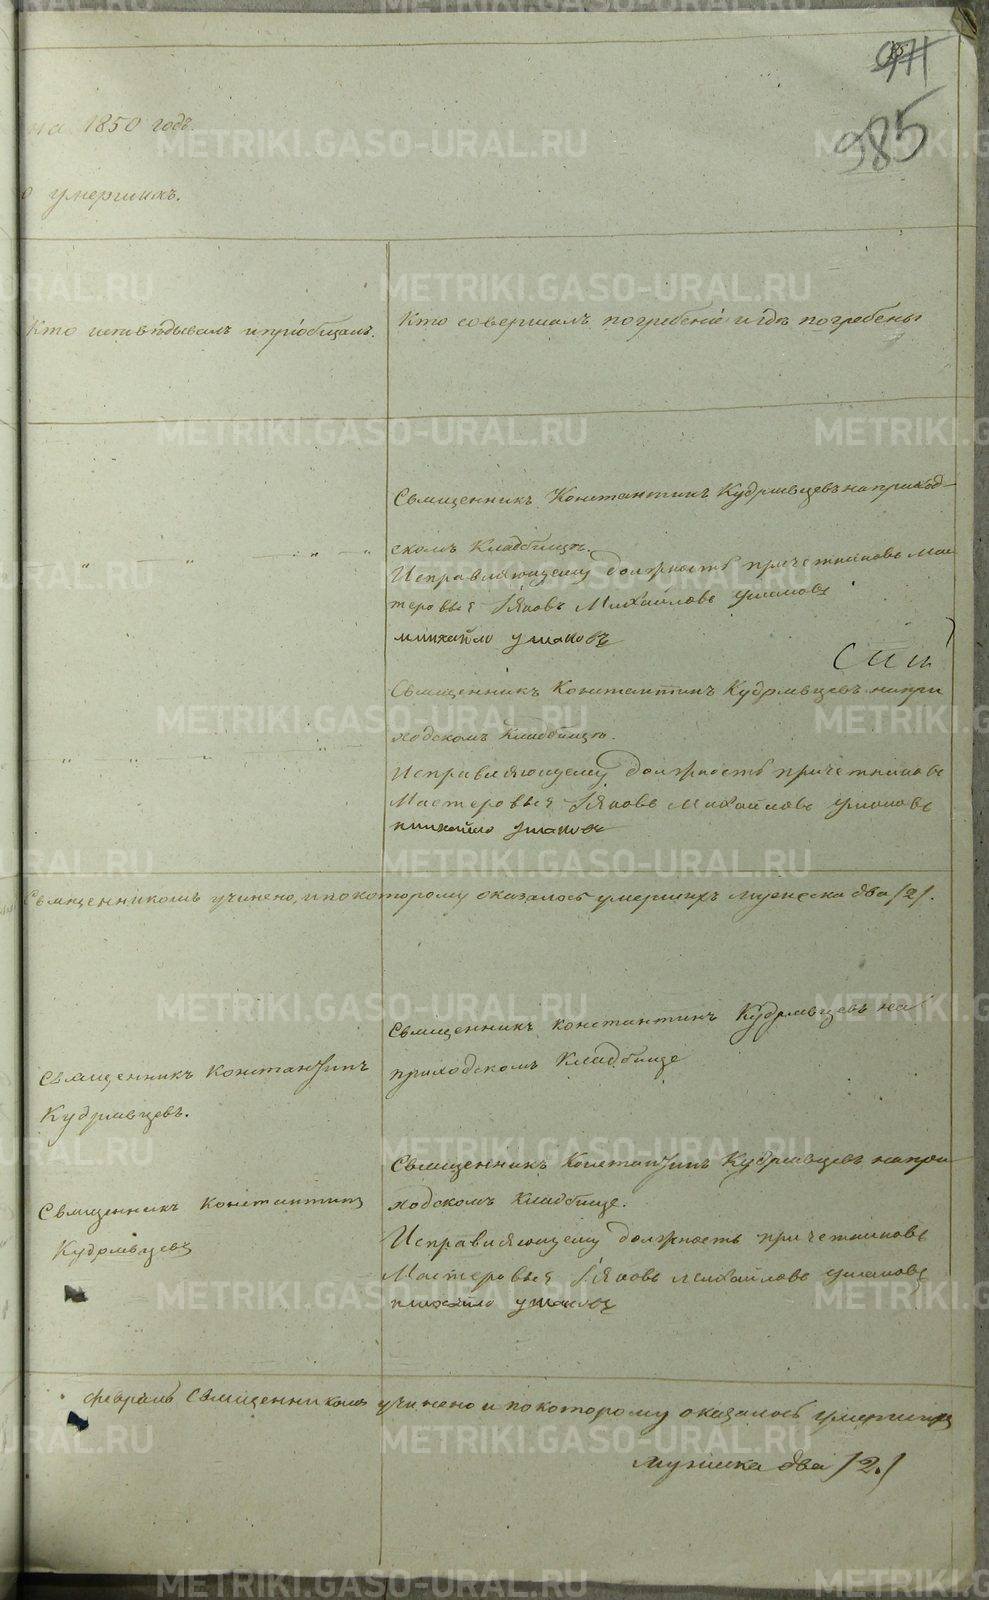 971
985
на 1850 годъ.
о умершихъ.
Кто исповѣдывалъ и пріобщалъ.
Кто совершалъ погребеніе и гдѣ погребены
Священникъ Константинъ Кудрявцевъ на приход-
скомъ Кладбищѣ.
Исправляющему должность причетниковъ Мас
теровые Іяковъ Михайловъ Ушаковъ
михайло ушаковъ
Священникъ Константинъ Кудрявцевъ на при
ходскомъ Кладбищѣ.
Исправляющему должность причетниковъ
Мастеровые Іяковъ Михайловъ Ушаковъ
михайло ушаковъ
Священникомъ учинено, и по которому оказалось умершихъ мужеска два /2/.
Священникъ Константинъ
Кудрявцевъ.
Священникъ Константинъ Кудрявцевъ на
приходскомъ Кладбище
Священникъ Константинъ
Кудрявцевъ
Священникъ Константинъ Кудрявцевъ на при
ходскомъ Кладбище.
Исправляющему должность причетниковъ
Мастеровые Іяковъ Михайловъ Ушаковъ
михайло ушаковъ
февраль Священникомъ учинено и по которому оказалось умершихъ
мужска два /2./
METRIKI.GASO-URAL.RU